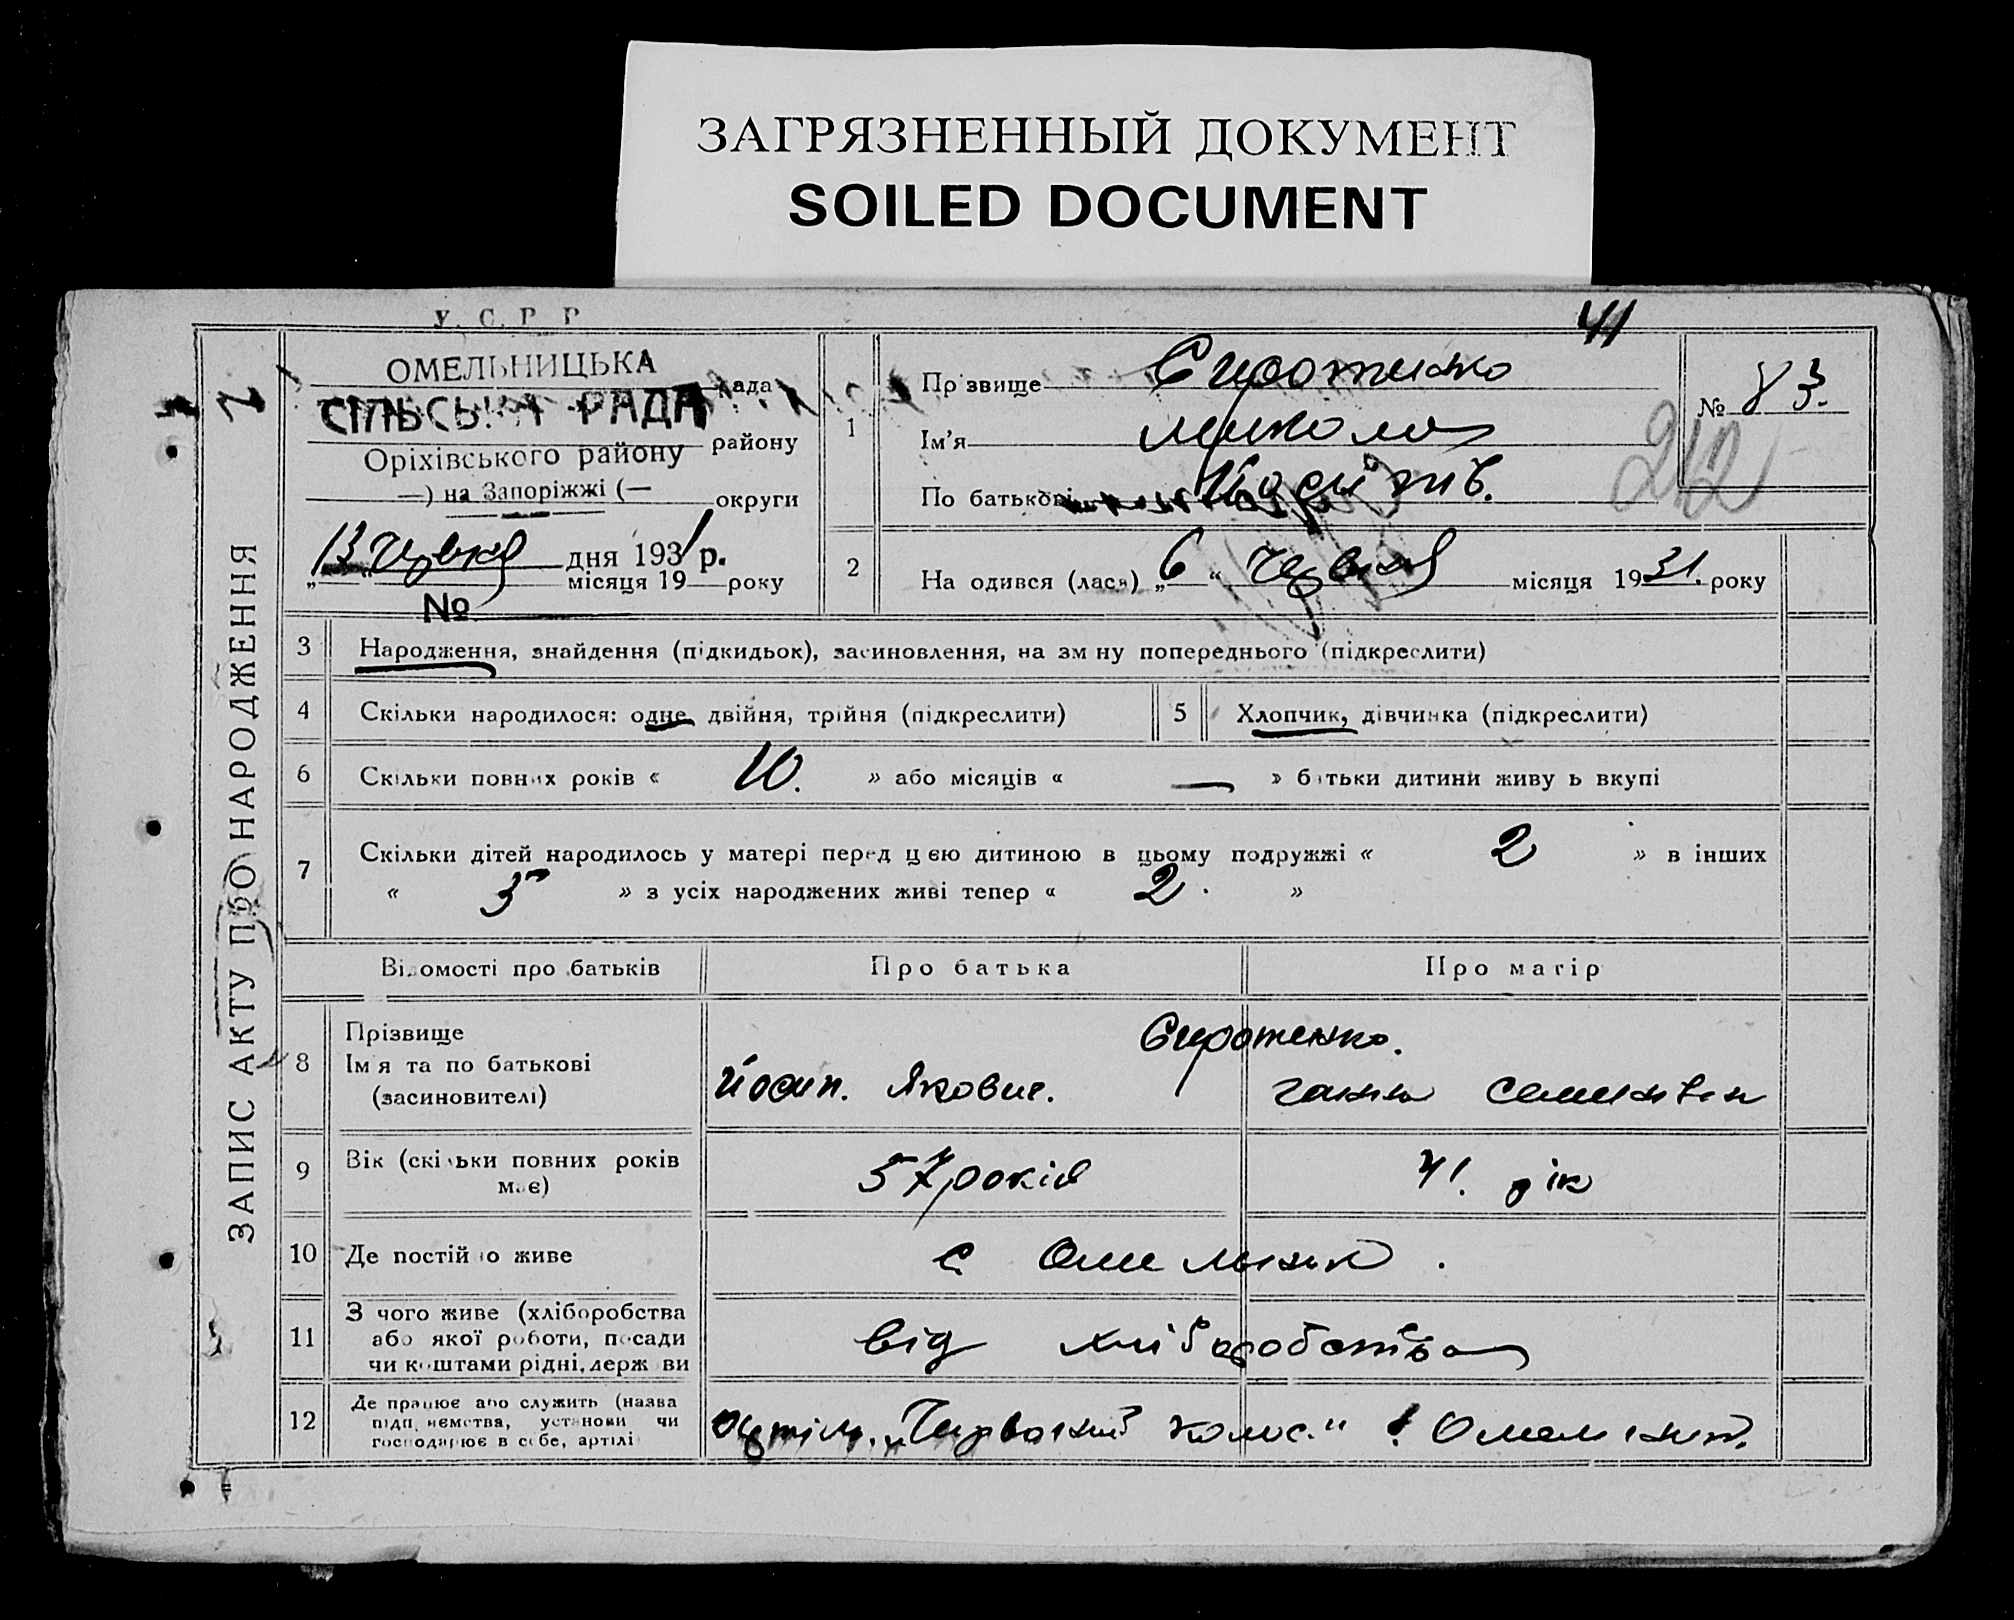 ЗАГРЯЗНЕННЫЙ ДОКУМЕНТ
SOILED DOCUMENT
У. С. Р. Р.
41
ЗАПИС АКТУ ПРО НАРОДЖЕННЯ
ОМЕЛЬНИЦЬКА
рада
СІЛЬСЬКА РАДА
району
Оріхівського району
—) на Запоріжжі (—
округи
13 червня дня 1931 р.
місяця 19 року
№
1
Прізвище Сиротенко
Ім'я Микола
По батькові Йосипів.
№ 83.
212
2
На одився (лася) „6“ Червня місяця 1931. року
3 Народження, знайдення (підкидьок), засиновлення, на зм ну попереднього (підкреслити)
4 Скільки народилося: одне, двійня, трійня (підкреслити)
5 Хлопчик, дівчинка (підкреслити)
6 Скільки повних років « 10. » або місяців « — » батьки дитини живу ь вкупі
7 Скільки дітей народилось у матері перед цією дитиною в цьому подружжі « 2 » в інших
« 5 » з усіх народжених живі тепер « 2. »
Відомості про батьків
Про батька
Про матір
8 Прізвище
Ім я та по батькові
(засиновителі)
Сиротенко.
Йосип. Якович.
Ганна Семенівна
9 Вік (скільки повних років
має)
57 років
41. рік
10 Де постій о живе
с Омельник.
11 З чого живе (хліборобства
або якої роботи, посади
чи коштами рідні, держ ви
від хліборобства
12 Де працює або служить (назва
підп иємства, установи чи
господарює в себе, артілі
Артіль. „Червоний колос."